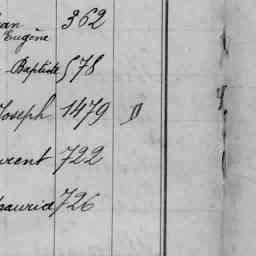 ean 362
Eugène
Baptiste 578
Joseph 1479 D
urent 722
aurice 726